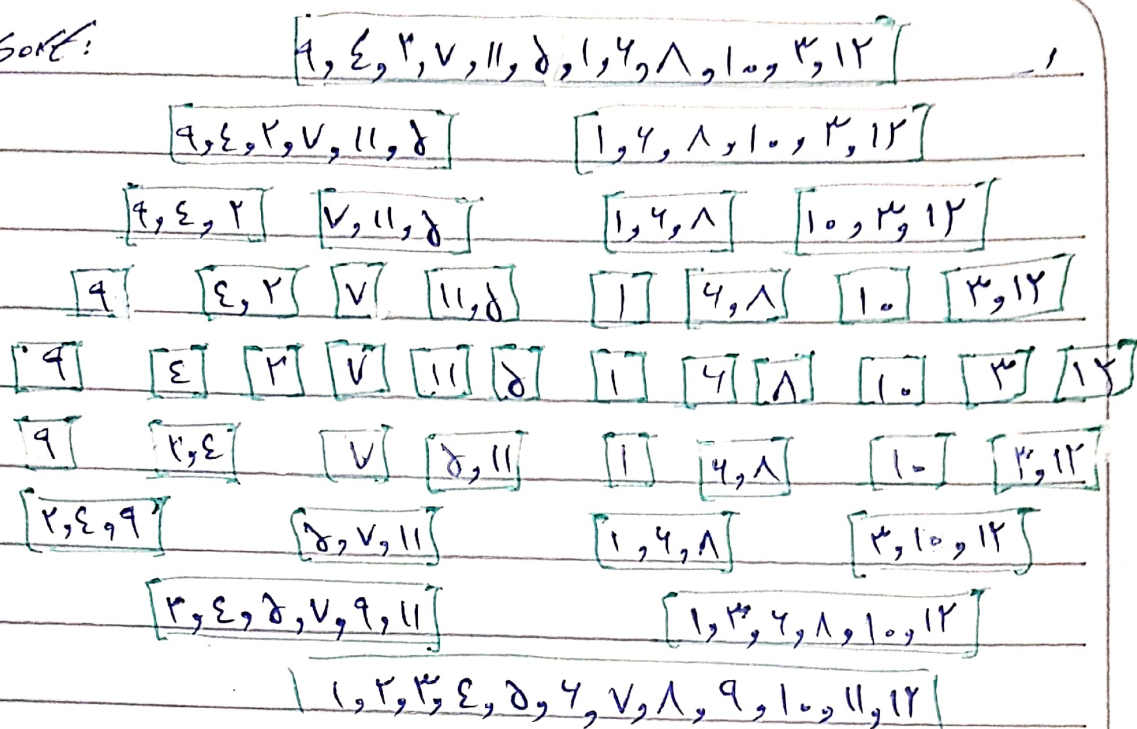 Sort: [۹, ٤, ۲, ۷, ۱۱, ۵, ۱, ۶, ۸, ۱۰, ۳, ۱۲]
[۹, ٤, ۲, ۷, ۱۱, ۵] [۱, ۶, ۸, ۱۰, ۳, ۱۲]
[۹, ٤, ۲] [۷, ۱۱, ۵] [۱, ۶, ۸] [۱۰, ۳, ۱۲]
[۹] [٤, ۲] [۷] [۱۱, ۵] [۱] [۶, ۸] [۱۰] [۳, ۱۲]
[۹] [٤] [۲] [۷] [۱۱] [۵] [۱] [۶] [۸] [۱۰] [۳] [۱۲]
[۹] [۲, ٤] [۷] [۵, ۱۱] [۱] [۶, ۸] [۱۰] [۳, ۱۲]
[۲, ٤, ۹] [۵, ۷, ۱۱] [۱, ۶, ۸] [۳, ۱۰, ۱۲]
[۲, ٤, ۵, ۷, ۹, ۱۱] [۱, ۳, ۶, ۸, ۱۰, ۱۲]
[۱, ۲, ۳, ٤, ۵, ۶, ۷, ۸, ۹, ۱۰, ۱۱, ۱۲]